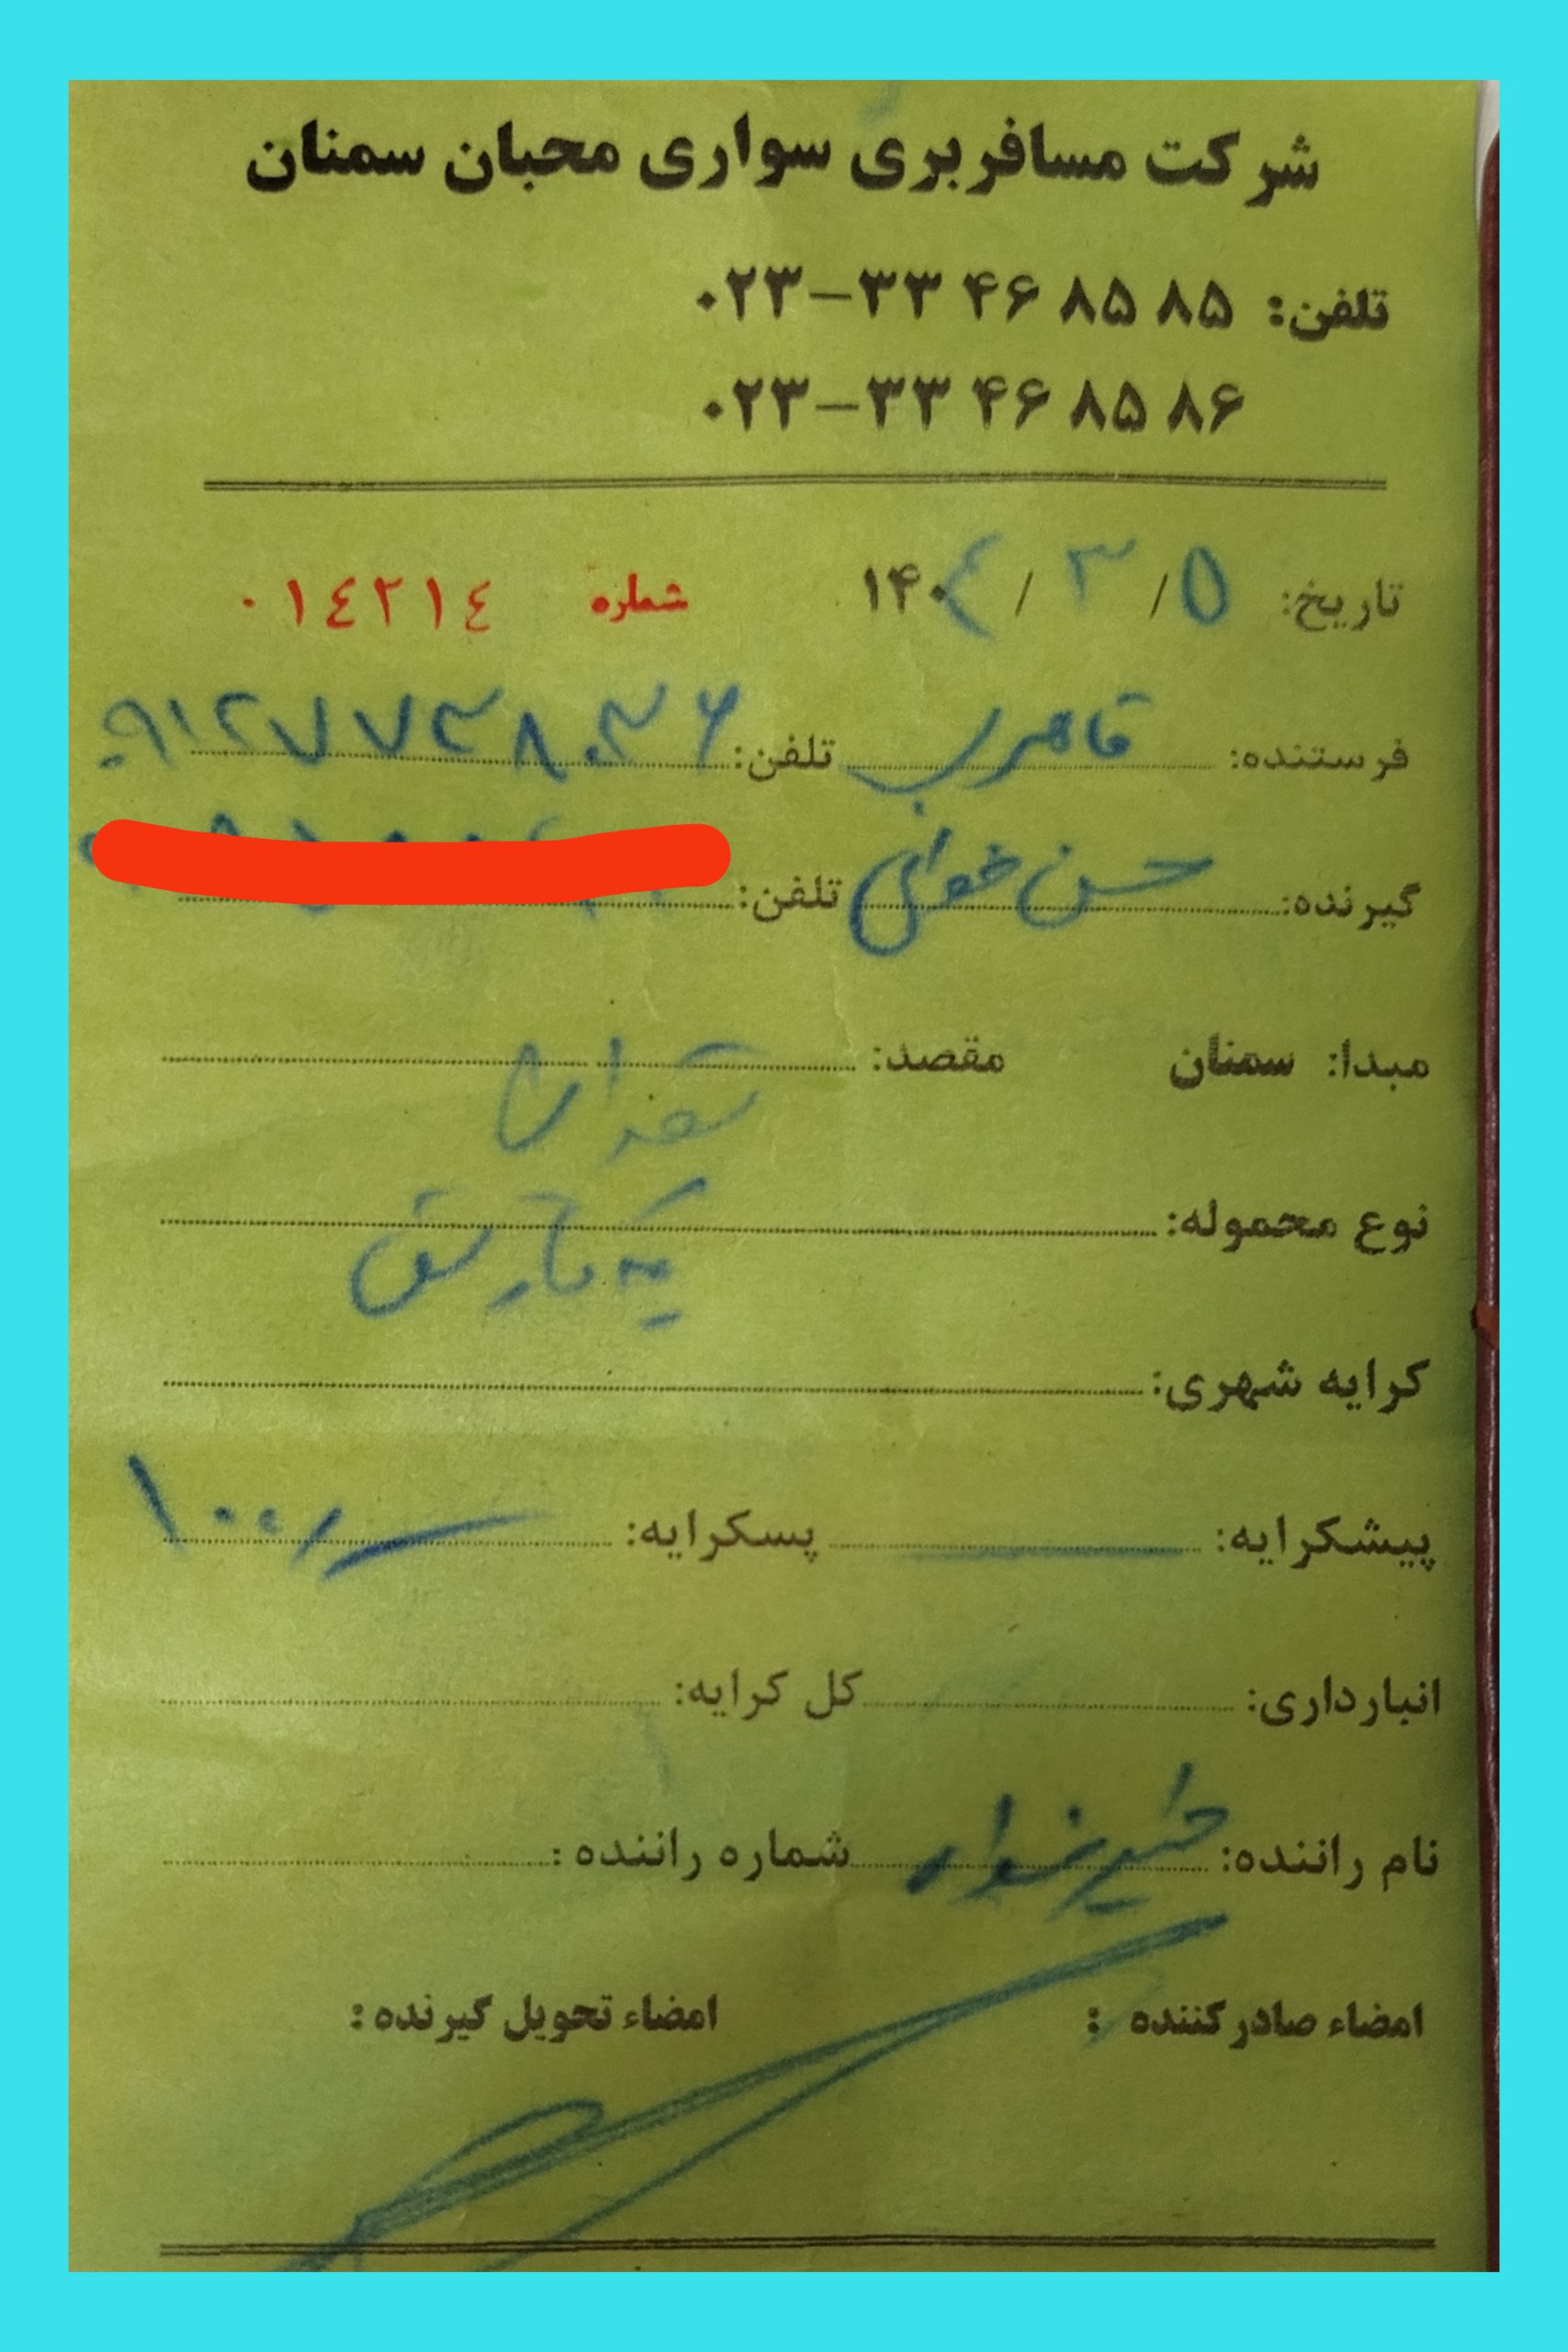 شرکت مسافربری سواری محبان سمنان
تلفن: ۰۲۳-۳۳ ۴۶ ۸۵ ۸۵
۰۲۳-۳۳ ۴۶ ۸۵ ۸۶
تاریخ: ۱۴۰۴/۳/۵ شماره ۰۱۴۲۱۴
فرستنده: تلفن: ۰۹۱۲۷۷۳۸۰۳۶
گیرنده: حسن تلفن:
مبدا: سمنان مقصد: تهران
نوع محموله: یه کارتن
کرایه شهری:
پیشکرایه: — پسکرایه: ۱۰۰/
انبارداری: کل کرایه:
نام راننده: شماره راننده:
امضاء صادرکننده: امضاء تحویل گیرنده: